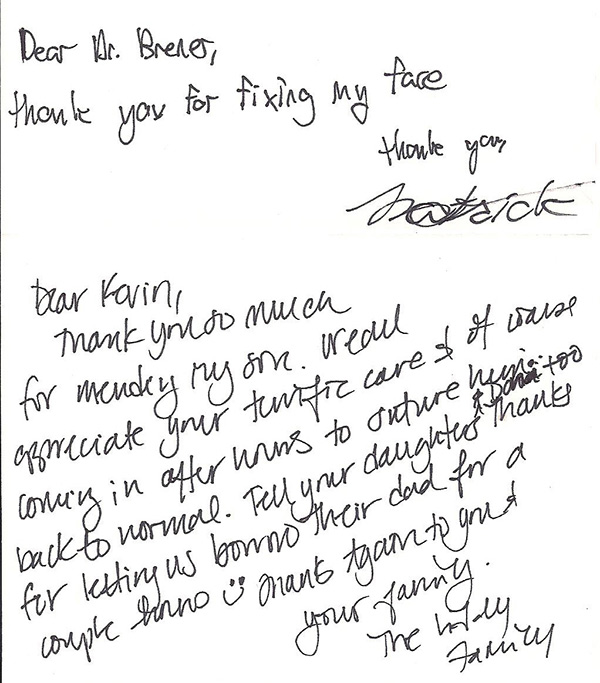 Dear Dr. Brenes,
thank you for fixing my face
thank you,
Patrick
Dear Kevin,
Thank you so much
for mending my son. We all
appreciate your terrific care & of course
coming in after hours to suture him
back to normal. Tell your daughters & Dana too thanks
for letting us borrow their dad for a
couple hours ☺ Thanks again to you &
your family.
The
Family